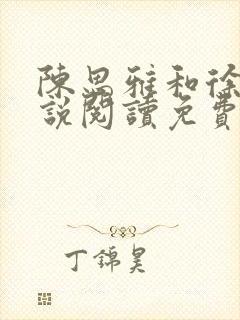 陳思雅和徐
說閱讀免費
丁錦昊